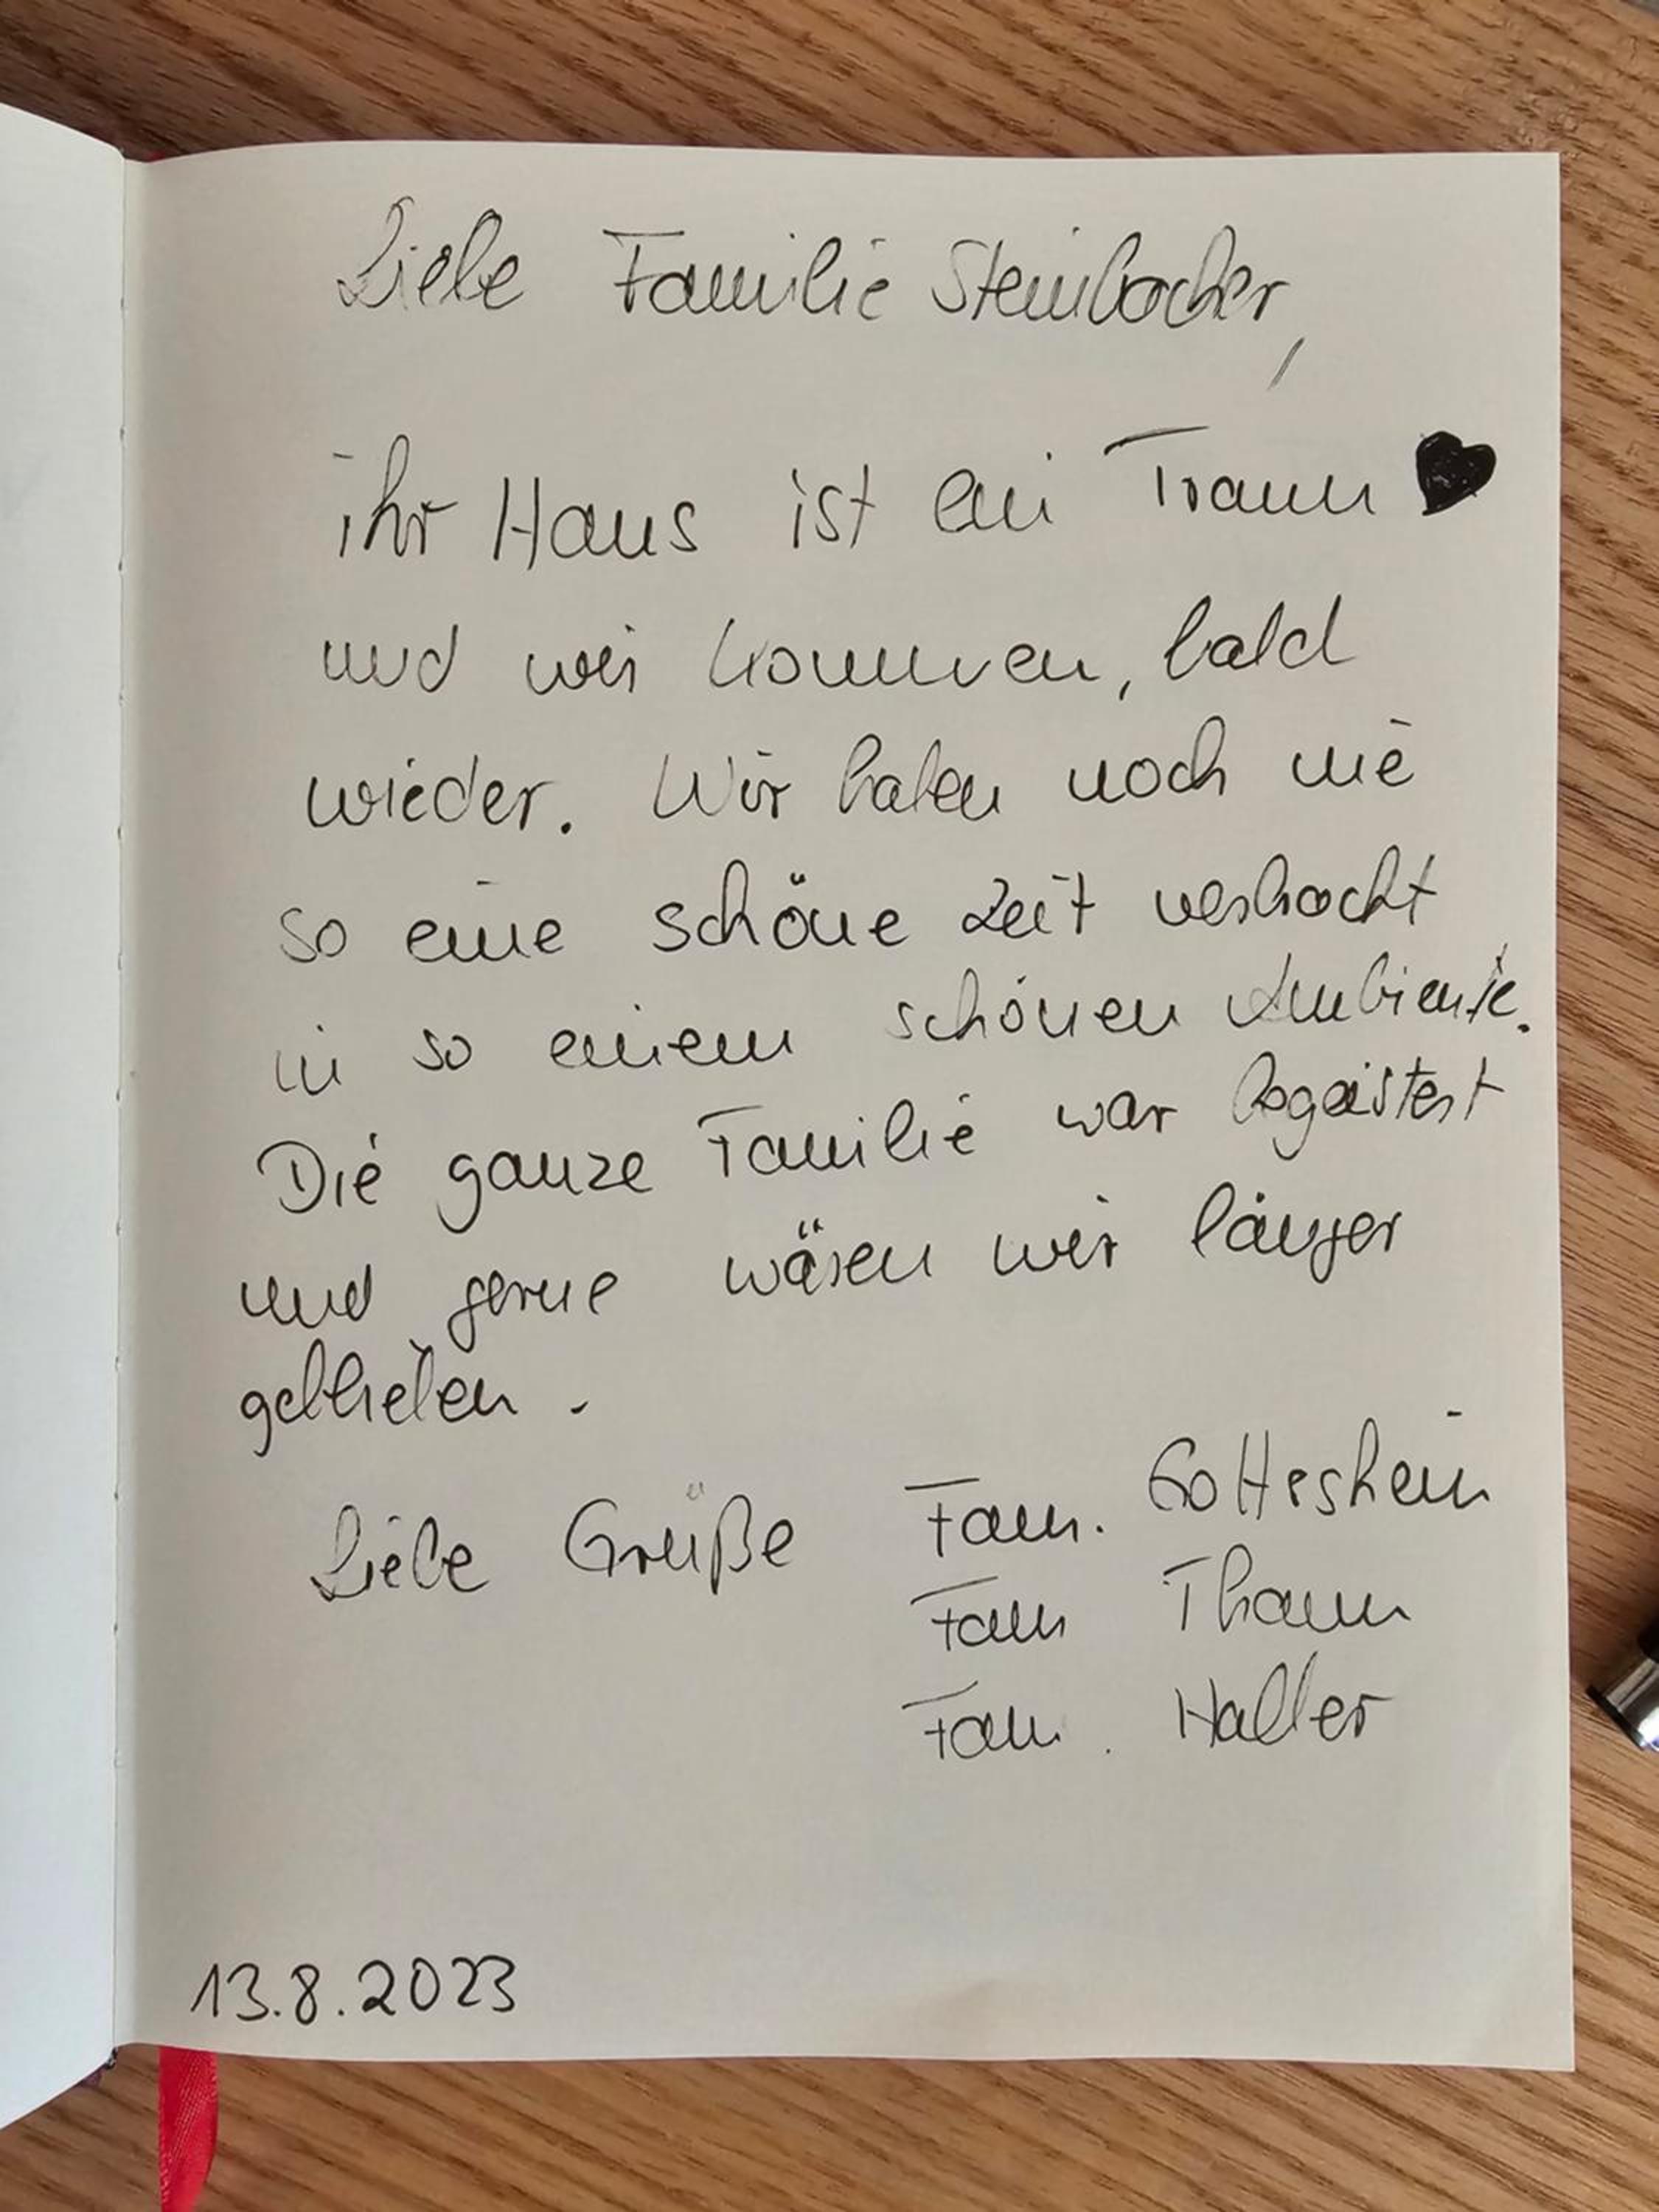 Liebe Familie Steinbacher,
ihr Haus ist ein Traum ♥
und wir kommen, bald
wieder. Wir haben noch nie
so eine schöne Zeit verbracht
in so einem schönen Ambiente.
Die ganze Familie war begeistert
und gerne wären wir länger
geblieben.
Liebe Grüße Fam. Gottesheim
Fam Thamm
Fam. Haller
13.8.2023